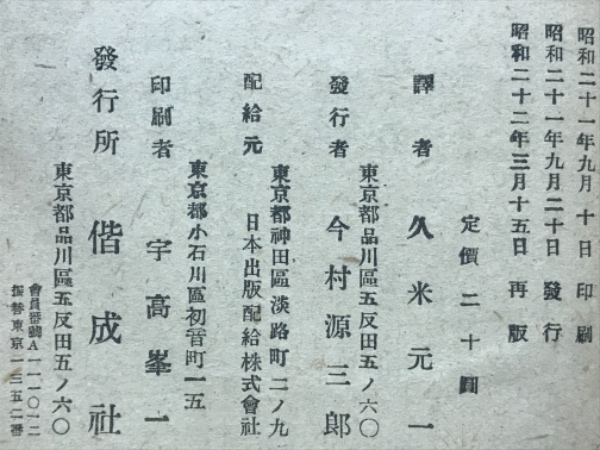 昭和二十一年九月十日印刷
昭和二十一年九月二十日發行
昭和二十二年三月十五日再版
定價二十圓
譯者 久米元一
東京都品川區五反田五ノ六〇
發行者 今村源三郎
東京都神田區淡路町二ノ九
配給元 日本出版配給株式會社
東京都小石川區初音町一五
印刷者 宇高峯一
東京都品川區五反田五ノ六〇
發行所 偕成社
會員番號A一一一〇一二
振替東京一三五二番